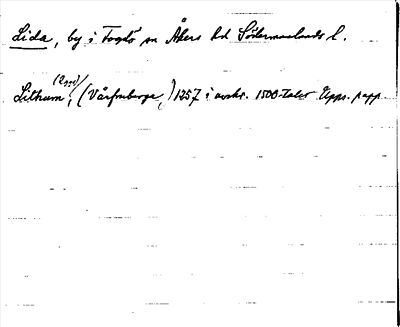 Lida, by i Fogdö sn Åkers hd Södermanlands l.
(2 ggr)
Lithum, (Vårfruberga,) 1257 i avskr. 1500-talet Upps. papp